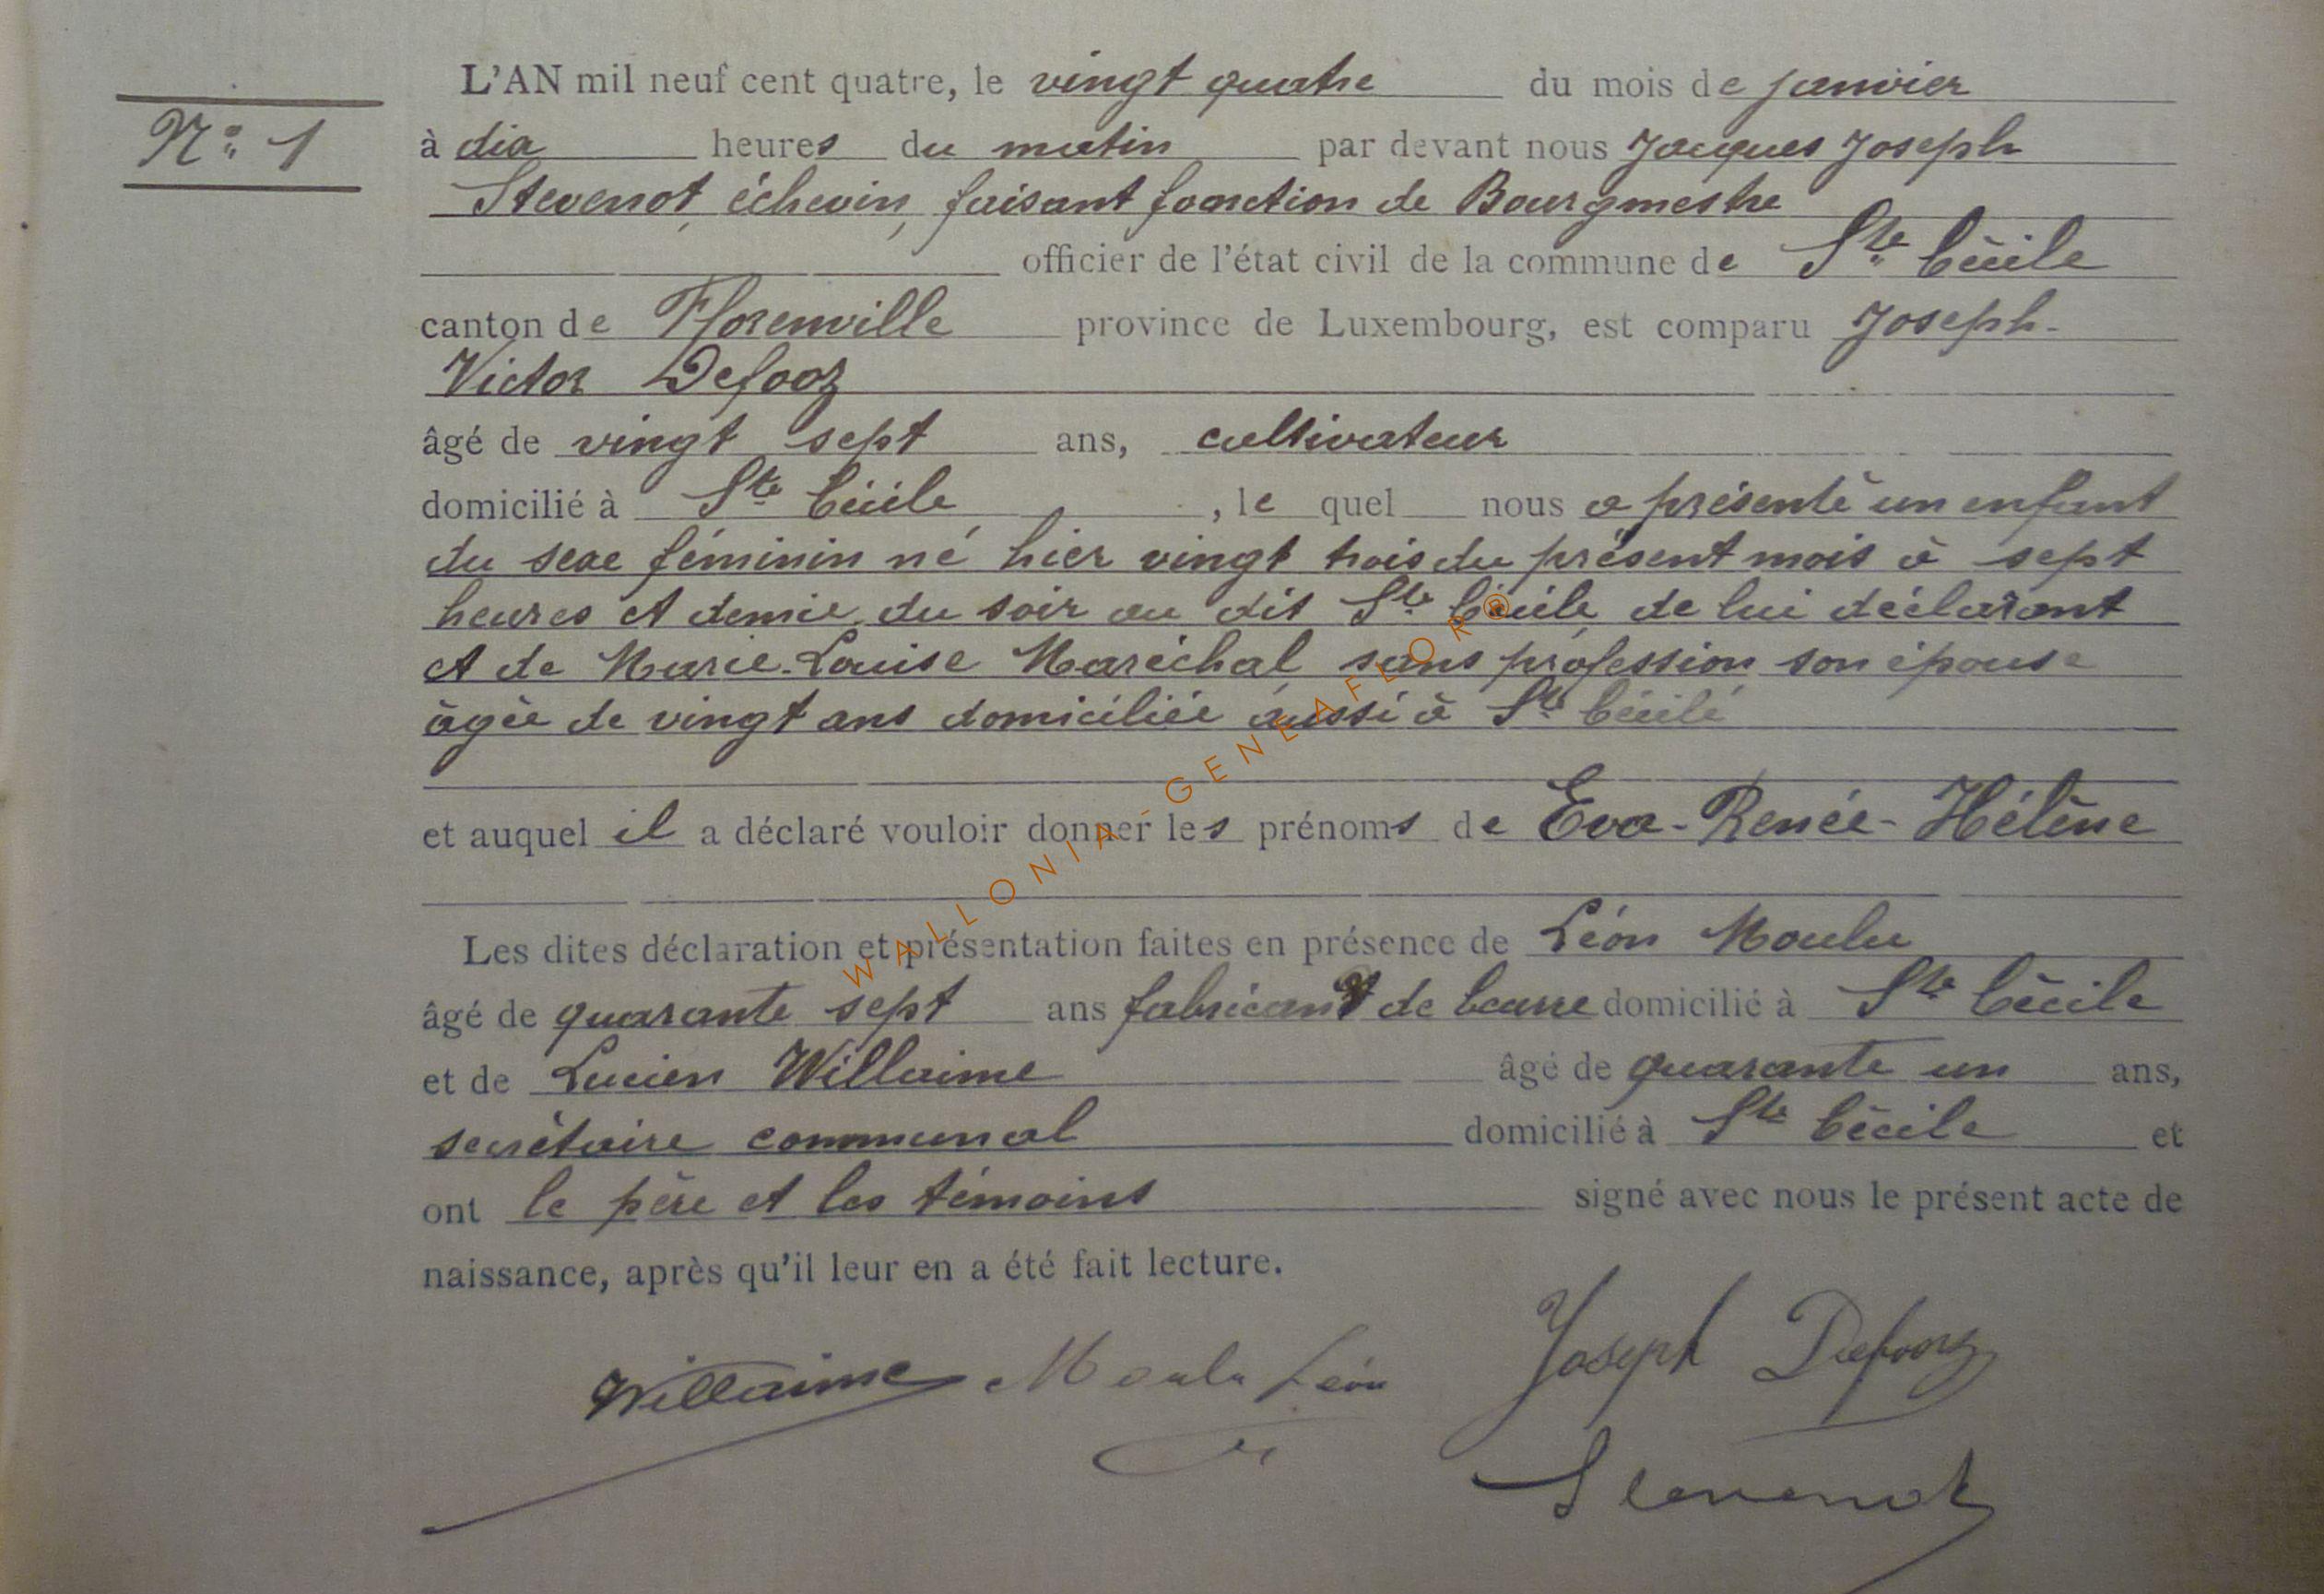 L'AN mil neuf cent quatre, le vingt quatre du mois de janvier
N° 1
à dix heures du matin par devant nous Jacques Joseph
Stevenot, échevin, faisant fonction de Bourgmestre
officier de l'état civil de la commune de Ste Cécile
canton de Florenville province de Luxembourg, est comparu Joseph-
Victor Defooz
âgé de vingt sept ans, cultivateur
domicilié à Ste Cécile, le quel nous a présenté un enfant
du sexe féminin né hier vingt trois du présent mois à sept
heures et demie du soir au dit Ste Cécile, de lui déclarant
et de Marie-Louise Maréchal sans profession son épouse
âgée de vingt ans domiciliée aussi à Ste Cécile
et auquel il a déclaré vouloir donner les prénoms de Eva-Renée-Hélène
Les dites déclaration et présentation faites en présence de Léon Moulu
âgé de quarante sept ans fabricant de beurre domicilié à Ste Cécile
et de Lucien Willaime âgé de quarante un ans,
secrétaire communal domicilié à Ste Cécile et
ont le père et les témoins signé avec nous le présent acte de
naissance, après qu'il leur en a été fait lecture.
Willaime Moulu Léon Joseph Defooz
Stevenot
WALLONIA-GENEAFLOR®